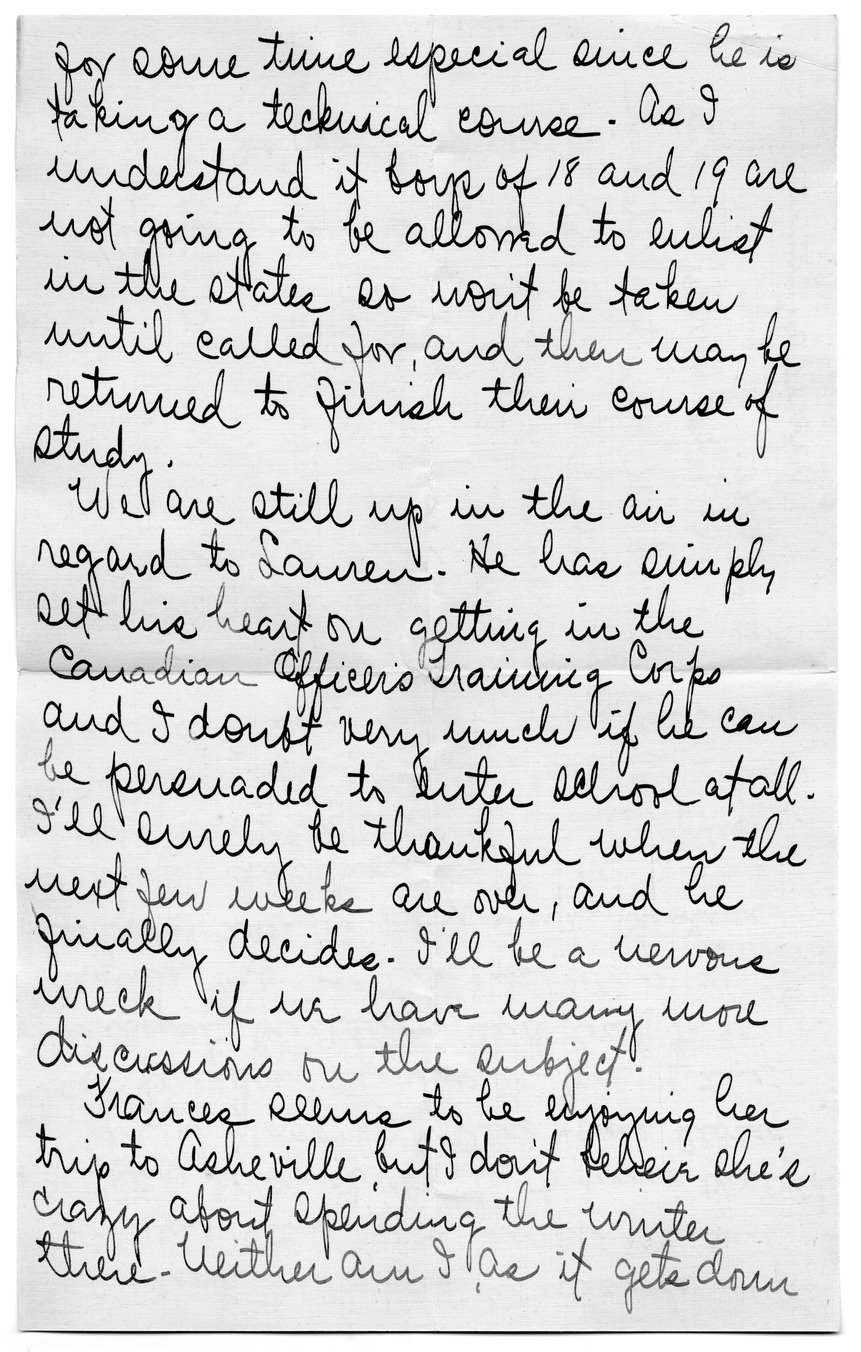 for some time especial since he is
taking a technical course. As I
understand it boys of 18 and 19 are
not going to be allowed to enlist
in the states so won't be taken
until called for, and then may be
returned to finish their course of
study.
We are still up in the air in
regard to Lauren. He has simply
set his heart on getting in the
Canadian Officers Training Corps
and I doubt very much if he can
be persuaded to enter school at all.
I'll surely be thankful when the
next few weeks are over, and he
finally decides. I'll be a nervous
wreck if we have many more
discussions on the subject.
Frances seems to be enjoying her
trip to Asheville, but I don't believe she's
crazy about spending the winter
there. Neither am I, as it gets down